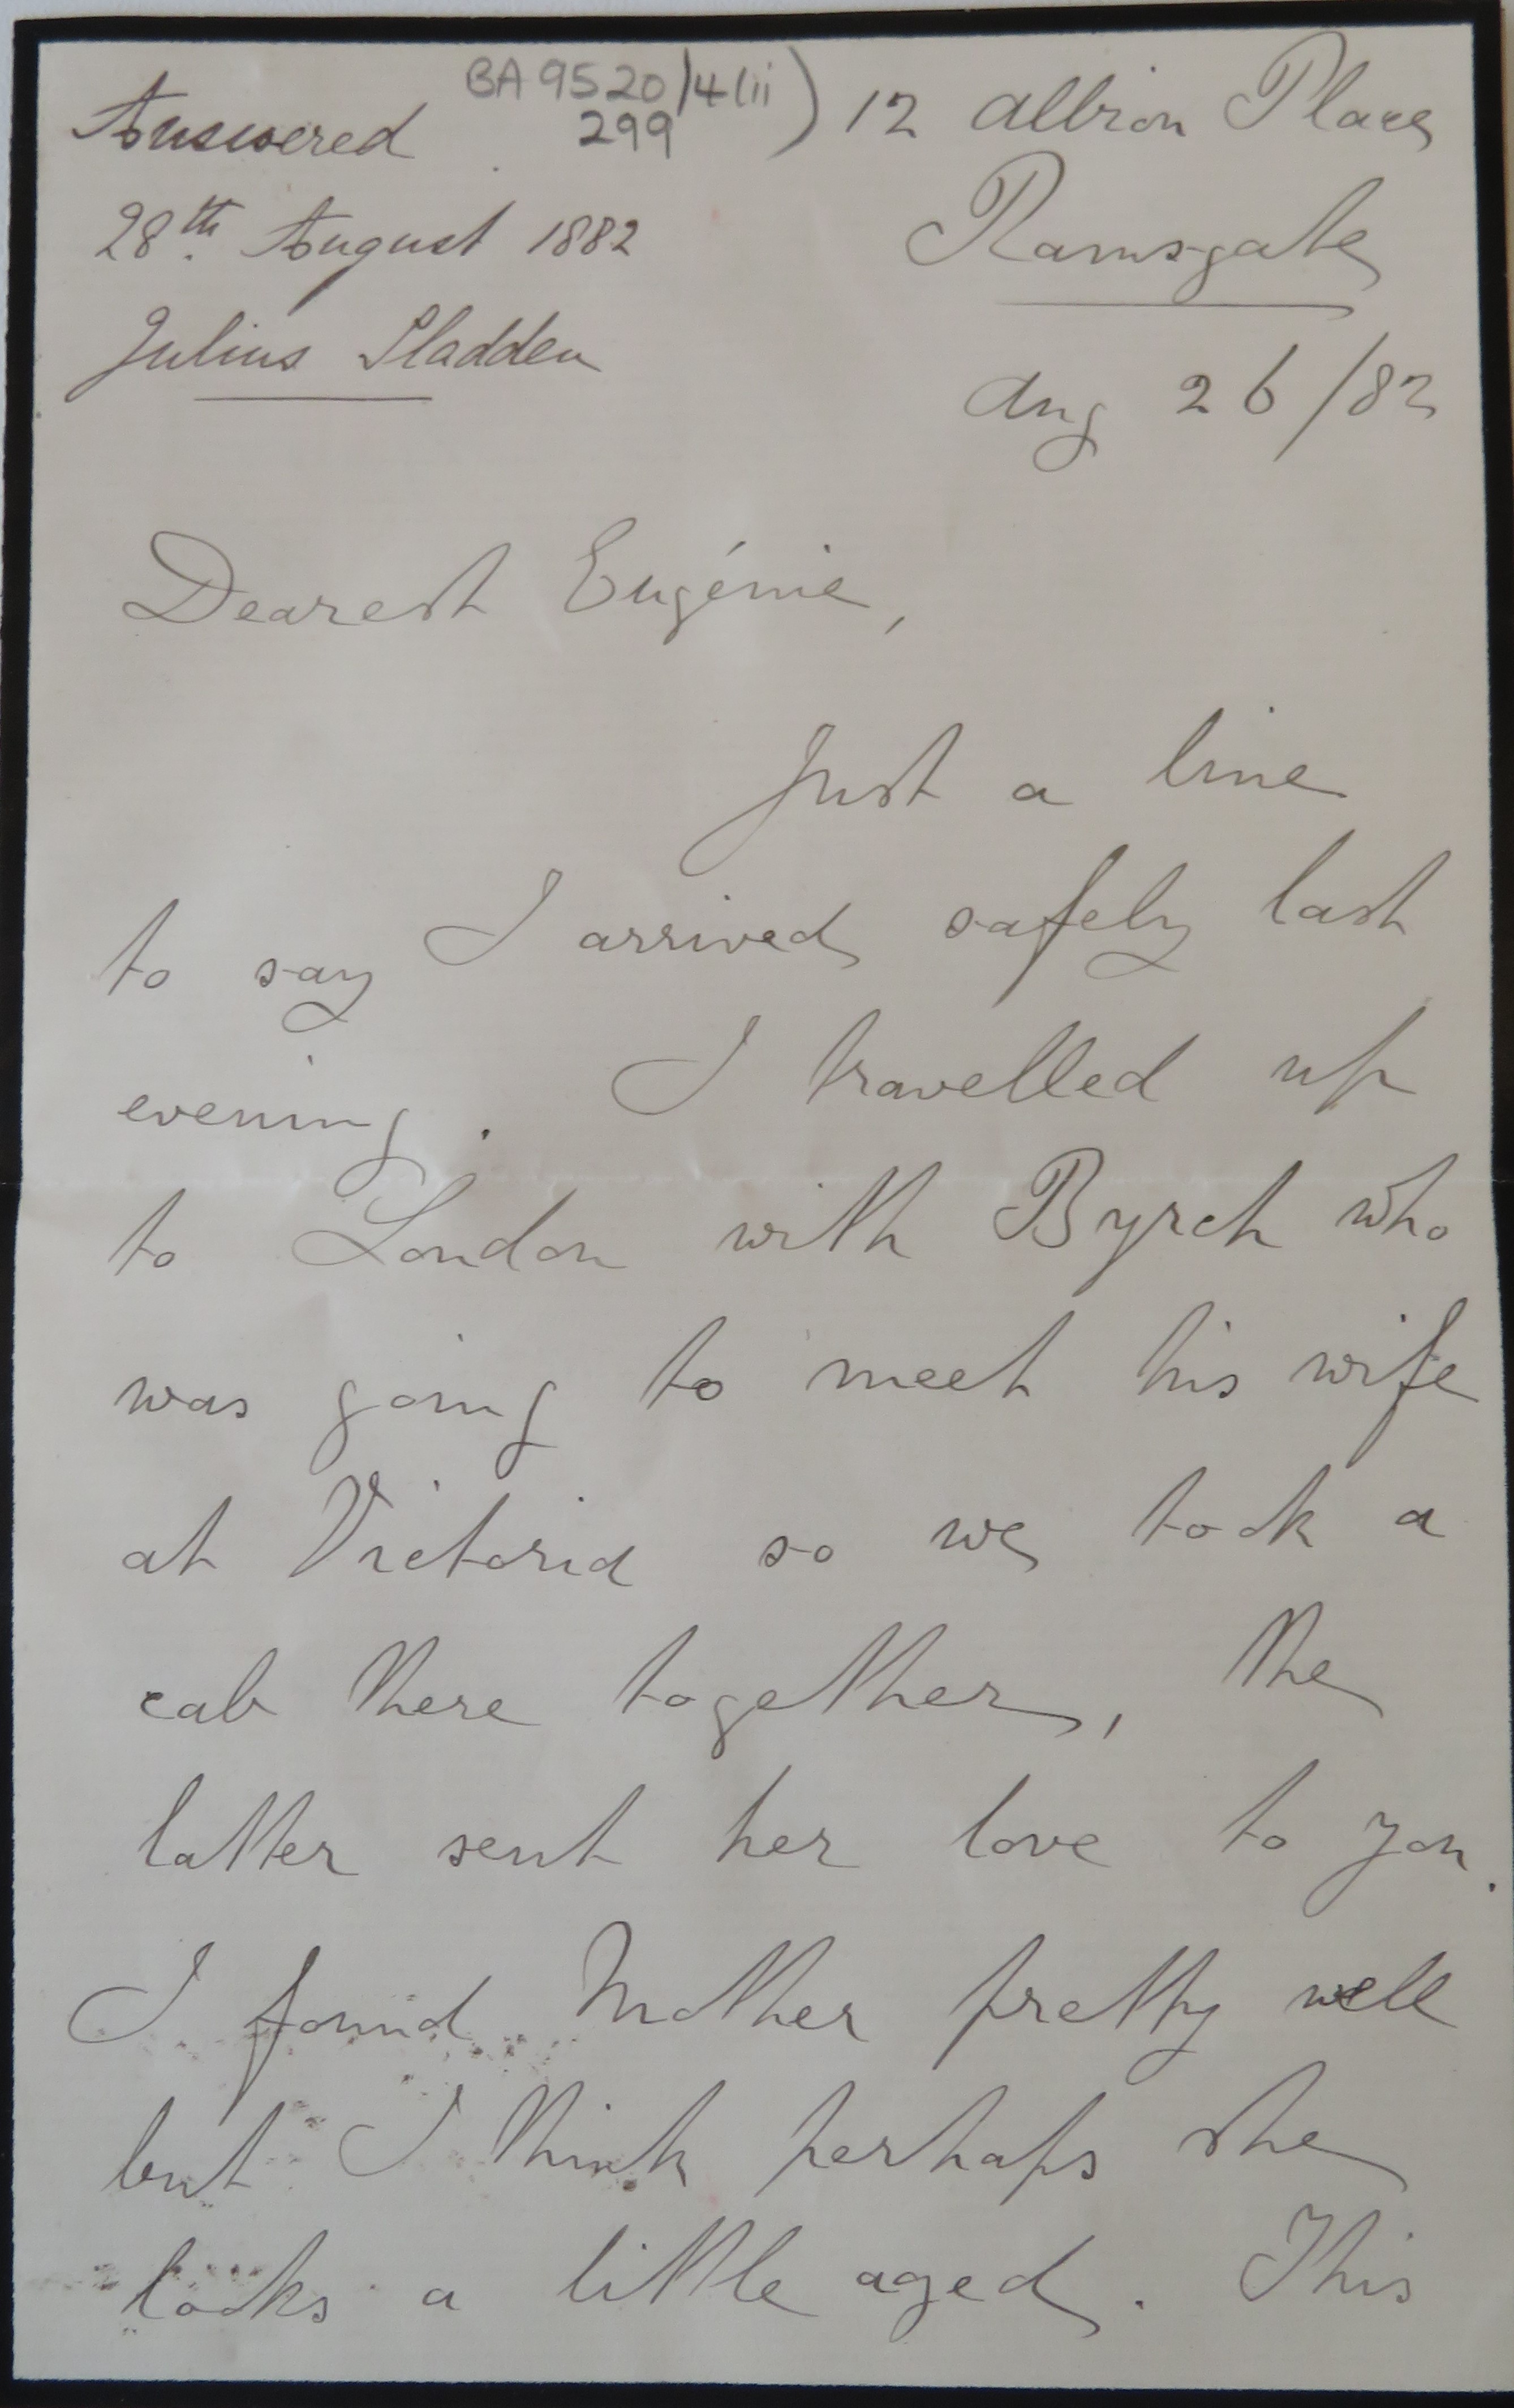 BA 9520/4(ii)
299
Answered
28th. August 1882
Julius Sladden
12 Albion Place
Ramsgate
Aug 26/82
Dearest Eugénie,
Just a line
to say I arrived safely last
evening. I travelled up
to London with Byrch who
was going to meet his wife
at Victoria so we took a
cab there together, the
latter sent her love to you.
I found Mother pretty well
but I think perhaps she
looks a little aged. This